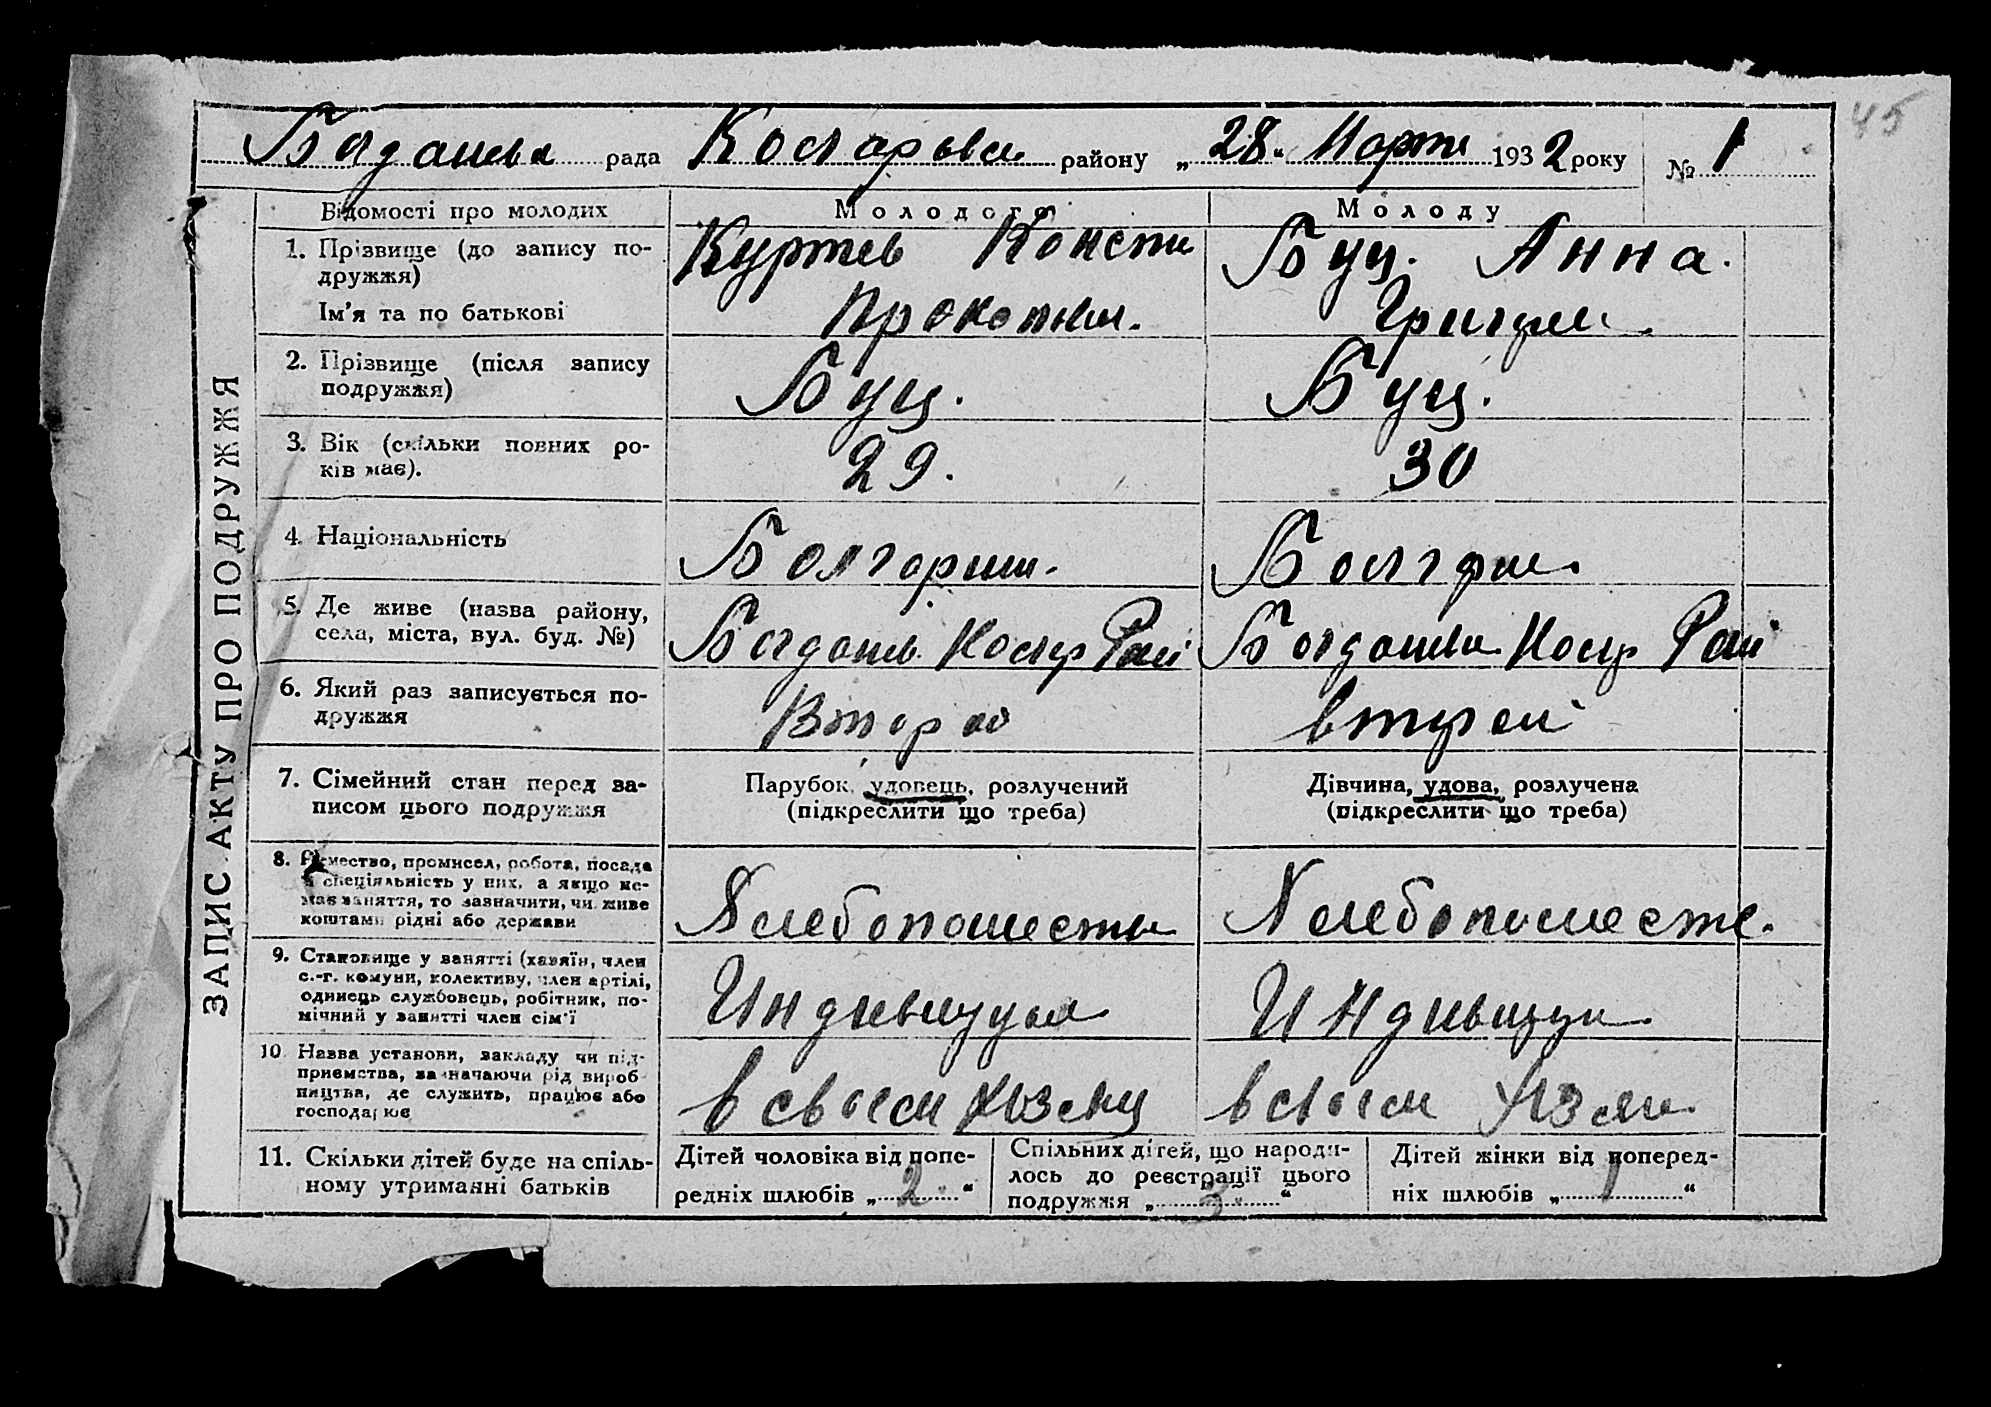 45
Богданивка рада Коларовск району „28“ Марта 1932 року № 1
ЗАПИС АКТУ ПРО ПОДРУЖЖЯ
Відомості про молодих
Молодого
Молоду
1. Прізвище (до запису по-
дружжя)
Ім'я та по батькові
Куртев Конста
Прокопьи.
Буц. Анна.
Григори
2. Прізвище (після запису
подружжя)
Буц.
Буц.
3. Вік (скільки повних ро-
ків має).
29.
30
4. Національність
Болгорин.
Болгри
5. Де живе (назва району,
села, міста, вул. буд. №)
Богданв. Колр Рай
Богданвк Колр Рай
6. Який раз записується по-
дружжя
Второй
второй
7. Сімейний стан перед за-
писом цього подружжя
Парубок, удовець, розлучений
(підкреслити що треба)
Дівчина, удова, розлучена
(підкреслити що треба)
8. Ремество, промисел, робота, посада
й спеціяльність у них, а якщо не-
має заняття, то зазначити, чи живе
коштами рідні або держави
Хлебопашеств
Хлебопашеств.
9. Становище у занятті (хазяїн, член
с.-г. комуни, колективу, член артілі,
одинець службовець, робітник, по-
мічний у занятті член сім'ї
Индивидуал
Индивиду
10. Назва установи, закладу чи під-
приємства, зазначаючи рід вироб-
ництва, де служить, працює або
господарює
в своем хозяц
в своем хозяи
11. Скільки дітей буде на спіль-
ному утриманні батьків
Дітей чоловіка від попе-
редніх шлюбів „2.“
Спільних дітей, що народи-
лось до реєстрації цього
подружжя „3.“
Дітей жінки від поперед-
ніх шлюбів „1“